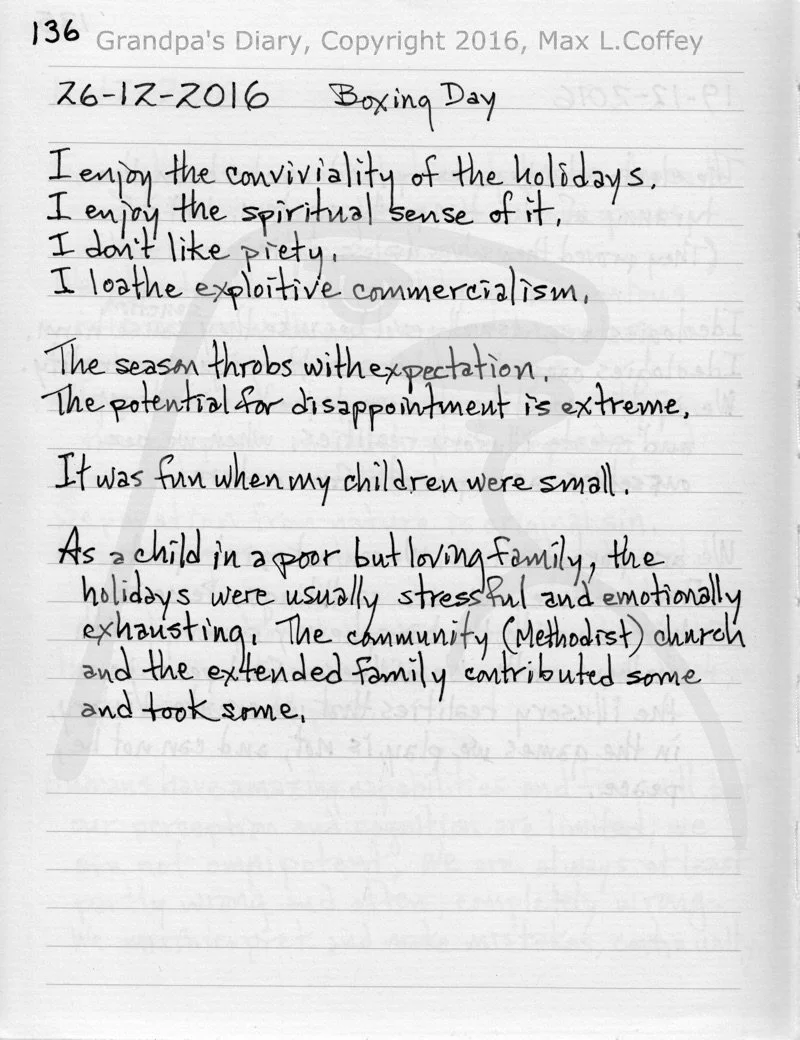 136 Grandpa's Diary, Copyright 2016, Max L.Coffey
26-12-2016 Boxing Day
I enjoy the conviviality of the holidays.
I enjoy the spiritual sense of it.
I don't like piety.
I loathe exploitive commercialism.
The season throbs with expectation.
The potential for disappointment is extreme.
It was fun when my children were small.
As a child in a poor but loving family, the
holidays were usually stressful and emotionally
exhausting. The community (Methodist) church
and the extended family contributed some
and took some.